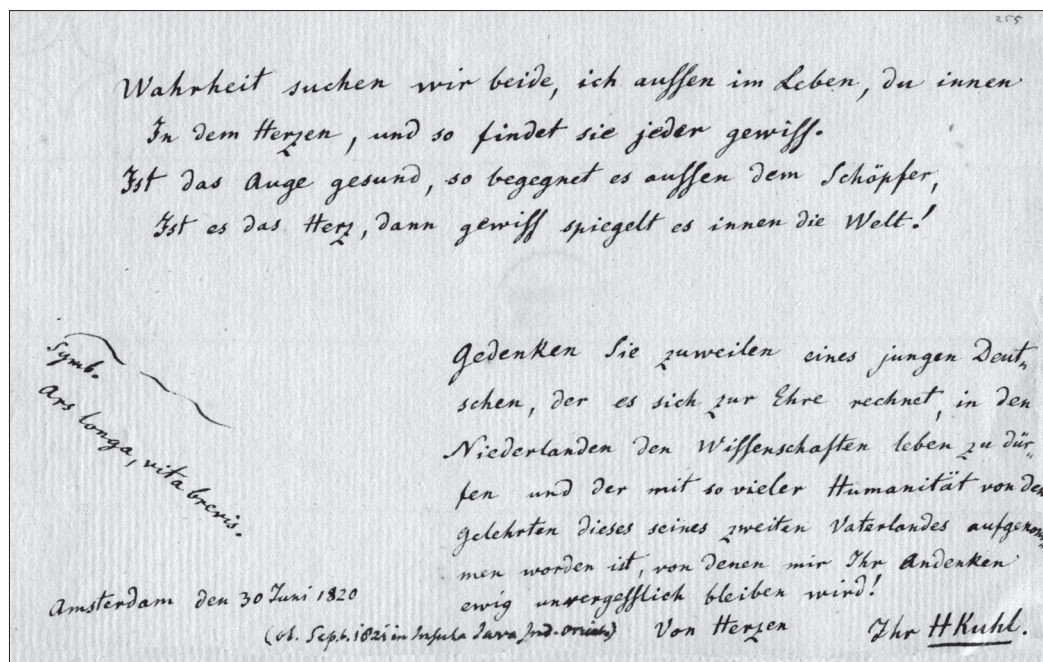 255
Wahrheit suchen wir beide, ich aussen im Leben, du innen
In dem Herzen, und so findet sie jeder gewiss.
Ist das Auge gesund, so begegnet es aussen dem Schöpfer,
Ist es das Herz, dann gewiss spiegelt es innen die Welt!
Symb.
Ars longa, vita brevis.
Gedenken Sie zuweilen eines jungen Deut-
schen, der es sich zur Ehre rechnet, in den
Niederlanden den Wissenschaften leben zu dür-
fen und der mit so vieler Humanität von den
Gelehrten dieses seines zweiten Vaterlandes aufgenom-
men worden ist, von denen mir Ihr Andenken
ewig unvergesslich bleiben wird!
Amsterdam den 30 Juni 1820
Von Herzen Ihr H Kuhl.
(ob. Septb. 1821 in Insula Java Ind. )